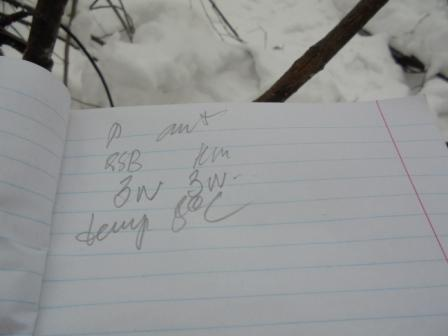 P ant
SSB km
3W 3W
temp 8°C